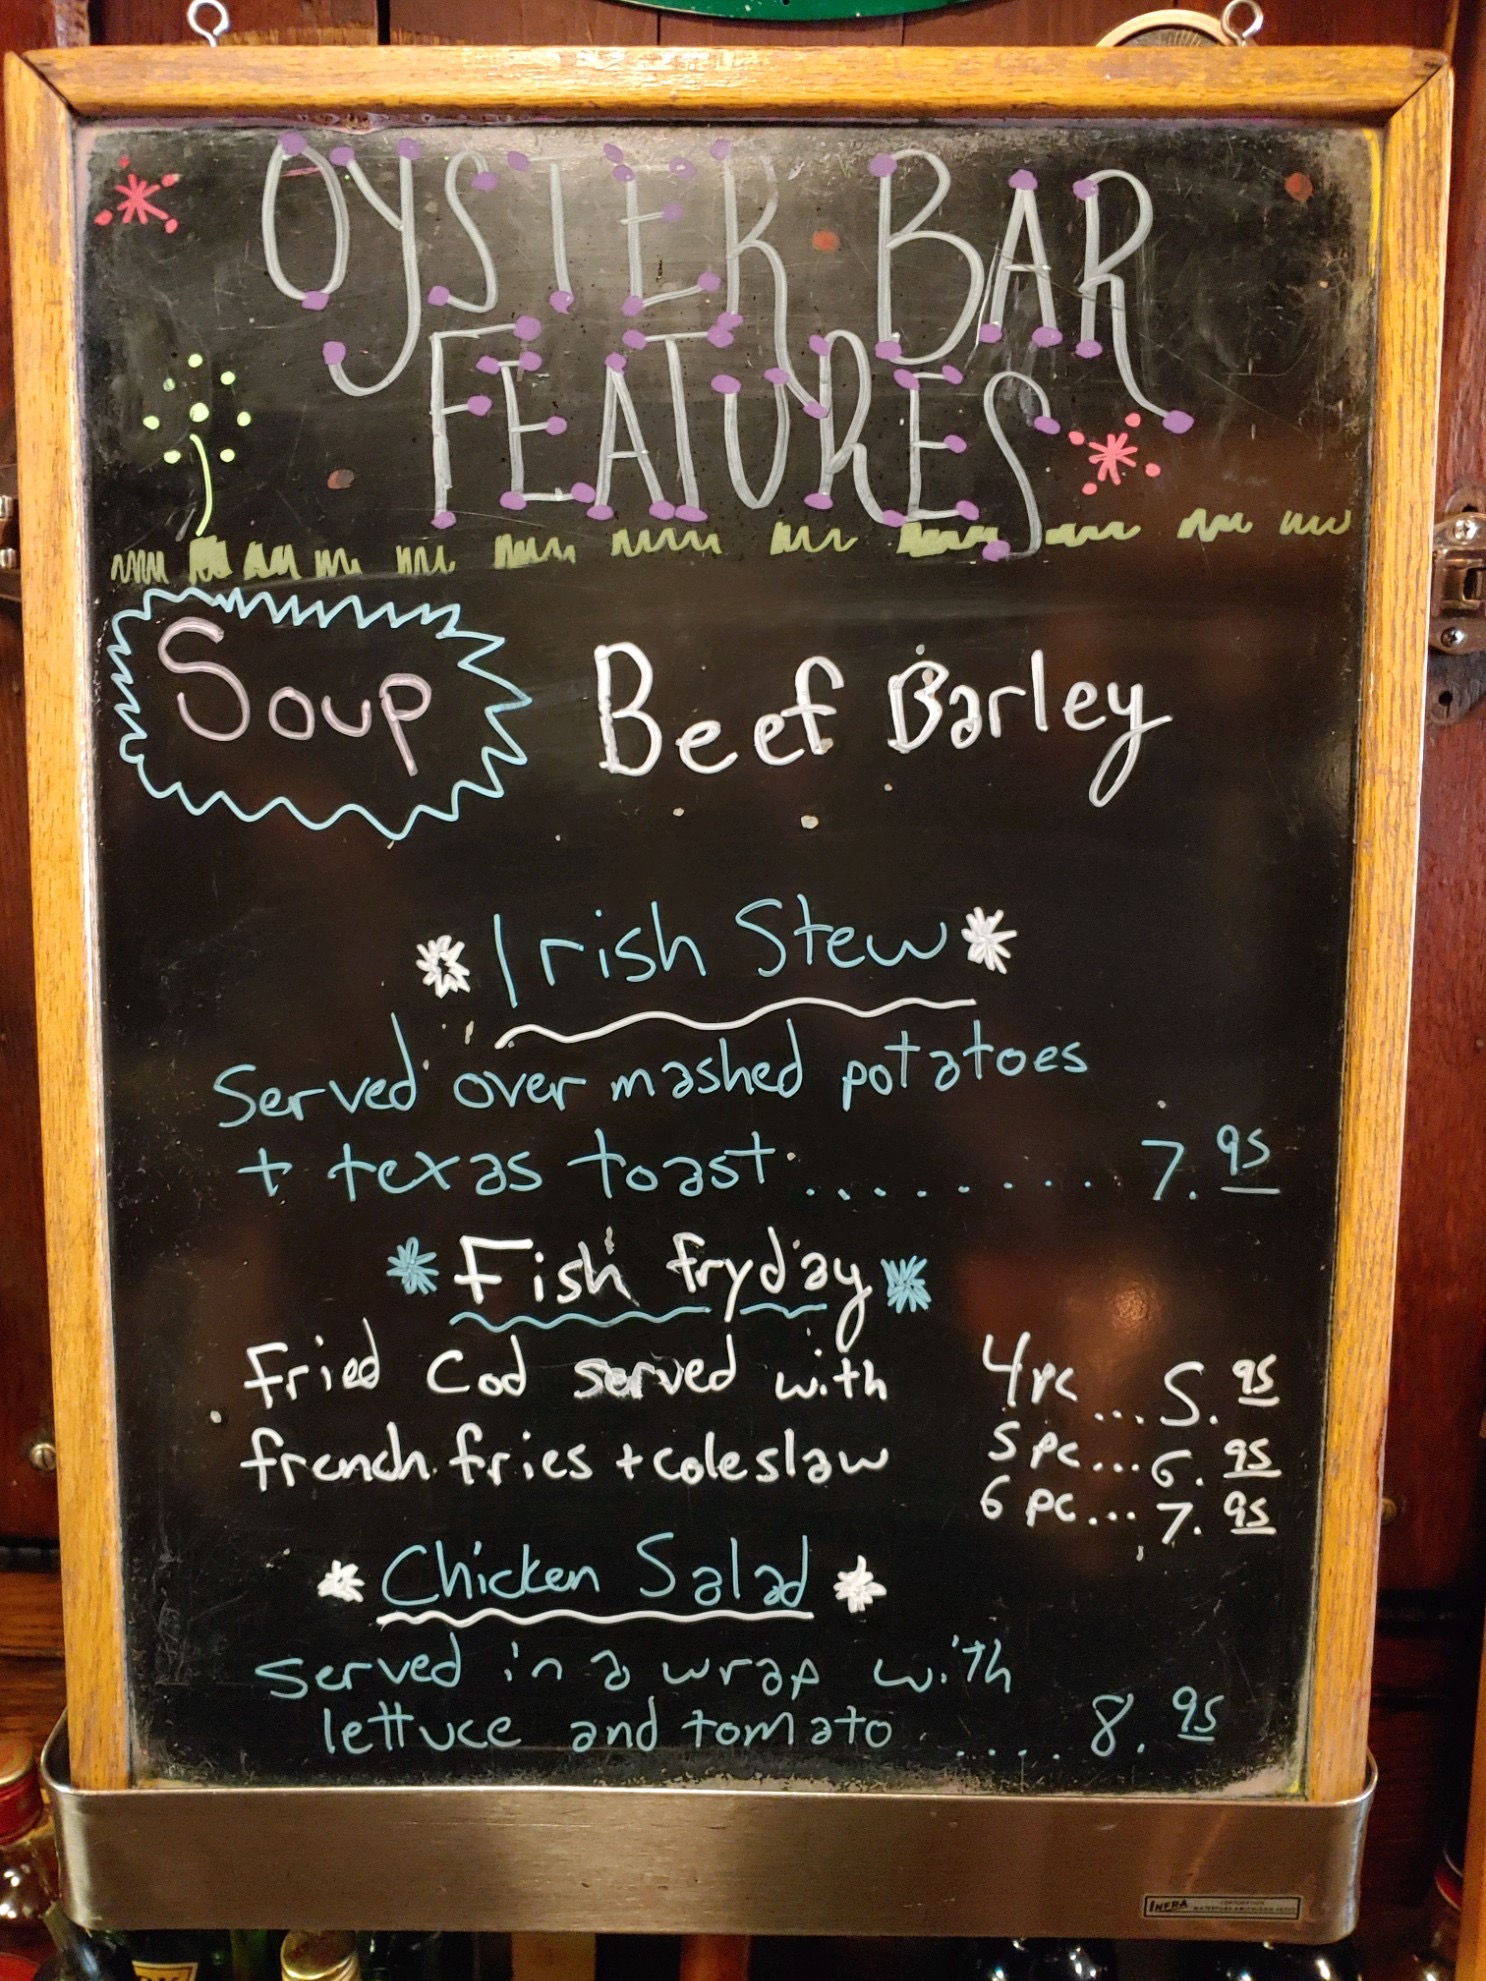 OYSTER BAR
FEATURES
Soup
Beef Barley
Irish Stew
Served over mashed potatoes
+ texas toast......... 7.95
Fish fryday
Fried Cod served with
french fries + coleslaw
4pc ... 5.95
5pc... 6.95
6pc... 7.95
Chicken Salad
served in a wrap with
lettuce and tomato ..... 8.95
INFRA
CORPORATION